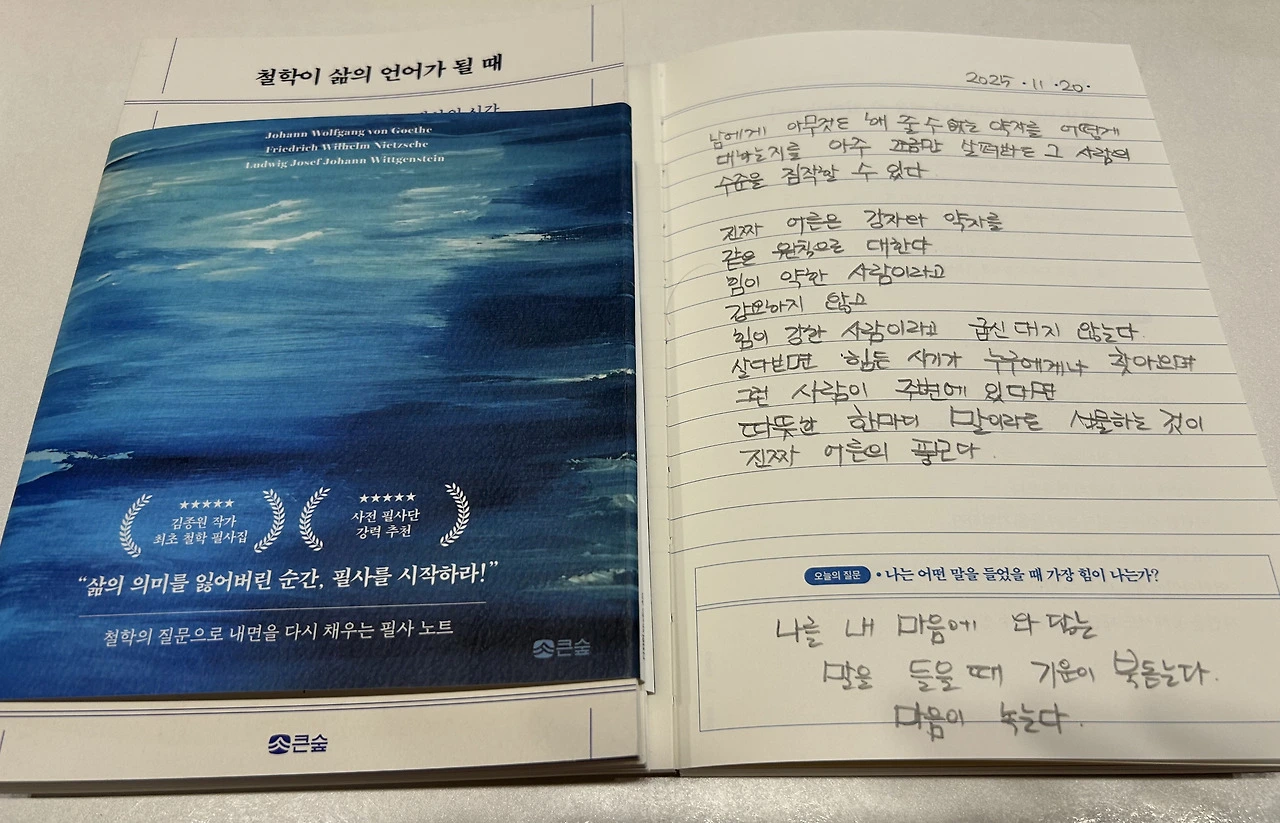 철학이 삶의 언어가 될 때
Johann Wolfgang von Goethe
Friedrich Wilhelm Nietzsche
Ludwig Josef Johann Wittgenstein
★★★★★
김종원 작가
최초 철학 필사집
★★★★★
사전 필사단
강력 추천
“삶의 의미를 잃어버린 순간, 필사를 시작하라!”
철학의 질문으로 내면을 다시 채우는 필사 노트
큰숲
큰숲
2025.11.20.
남에게 아무것도 해 줄 수 없는 약자를 어떻게
대하는지를 아주 조금만 살펴봐도 그 사람의
수준을 짐작할 수 있다
진짜 어른은 강자와 약자를
같은 원칙으로 대한다
힘이 약한 사람이라고
강요하지 않고
힘이 강한 사람이라고 굽신대지 않는다.
살다보면 힘든 시기가 누구에게나 찾아오며
그런 사람이 주변에 있다면
따뜻한 한마디 말이라도 선물하는 것이
진짜 어른의 품격다
오늘의 질문 • 나는 어떤 말을 들었을 때 가장 힘이 나는가?
나를 내 마음에 와 닿는
말을 들을 때 기운이 북돋는다.
마음이 녹는다.